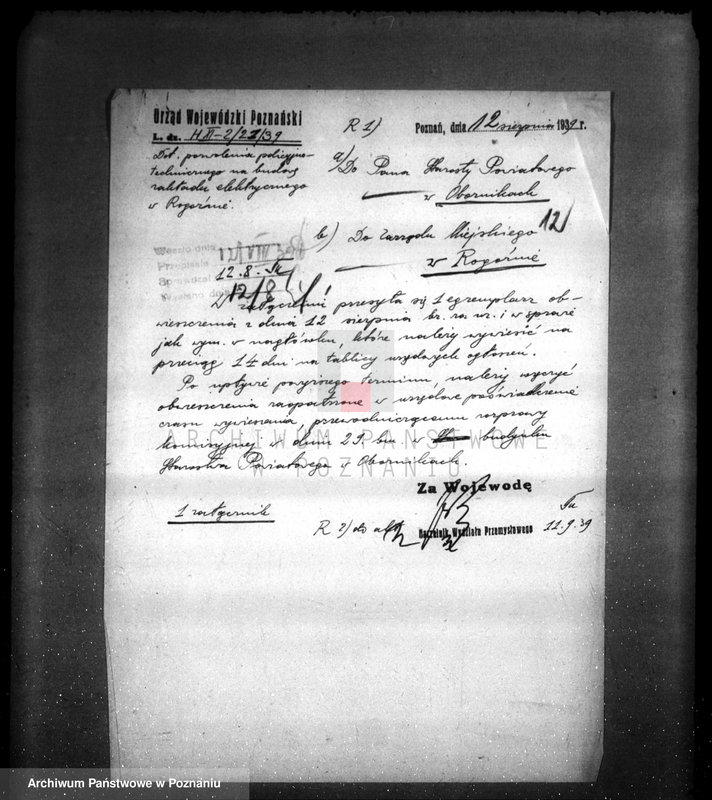 Urząd Wojewódzki Poznański
L. dz. H III-2/21/39
R 1)
Poznań, dnia 12 sierpnia 1939 r.
Dot. pozwolenia policyjno-
technicznego na budowę
zakładu elektrycznego
w Rogoźnie.
a) Do Pana Starosty Powiatowego
w Obornikach
b) Do Zarządu Miejskiego
w Rogoźnie
12
Weszło dnia
Przepisała
Sprawdzał
Wysłano dnia
12.8.
12/8
W załączeniu przesyła się 1 egzemplarz ob-
wieszczenia z dnia 12 sierpnia br. za nr. i w sprawie
jak wym. w nagłówku, które należy wywiesić na
przeciąg 14 dni na tablicy wydanych ogłoszeń.
Po upływie powyższego terminu, należy wręczyć
obwieszczenia zaopatrzone w urzędowe poświadczenie
czasu wywieszenia, przewodniczącemu rozprawy
komisyjnej w dniu 29. bm. w budynku
Starostwa Powiatowego w Obornikach.
ARCHIWUM PAŃSTWOWE
W POZNANIU
Za Wojewodę
1 załącznik
R 2) do akt
Naczelnik Wydziału Przemysłowego
11.9.39
Archiwum Państwowe w Poznaniu